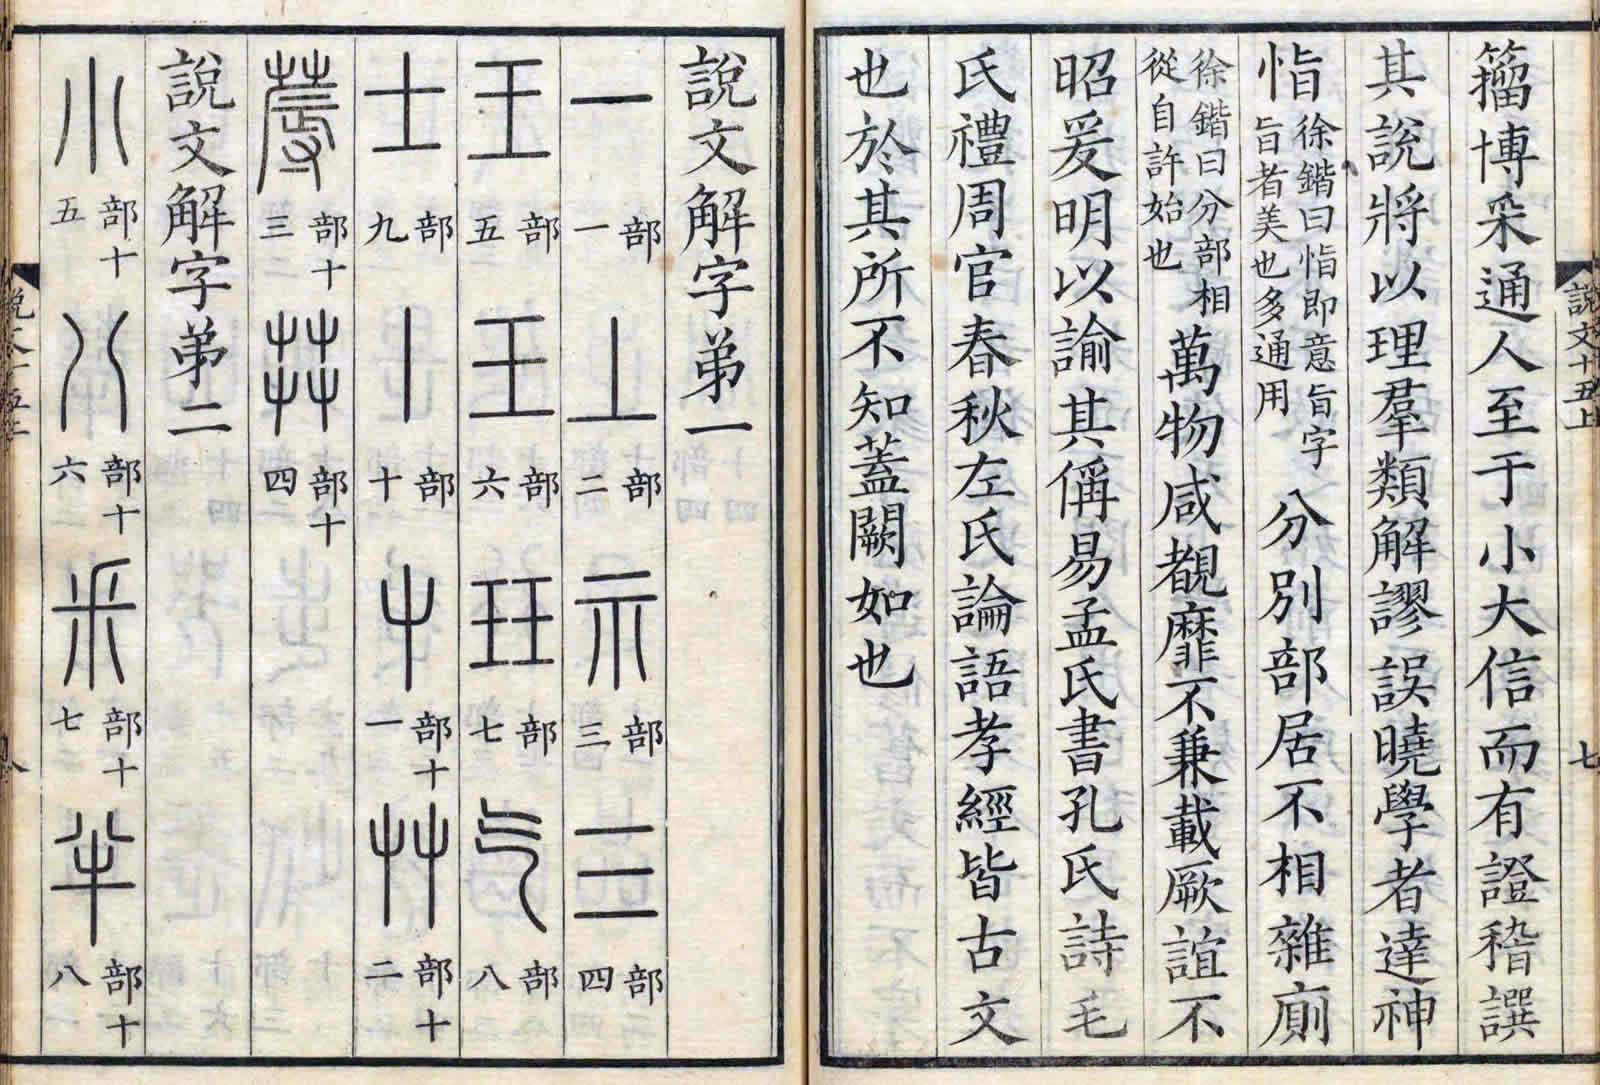 說文十五上 七
籒博采通人至于小大信而有證稽譔
其說將以理羣類解謬誤曉學者達神
恉徐鍇曰恉即意旨字旨者美也多通用分別部居不相雜廁
徐鍇曰分部相從自許始也萬物咸覩靡不兼載厥誼不
昭爰明以諭其偁易孟氏書孔氏詩毛
氏禮周官春秋左氏論語孝經皆古文
也於其所不知蓋闕如也
說文解字弟一
一部一 丄部二 示部三 三部四
王部五 玉部六 玨部七 气部八
士部九 丨部十 屮部十一 艸部十二
蓐部十三 茻部十四
說文解字弟二
小部十五 八部十六 釆部十七 半部十八